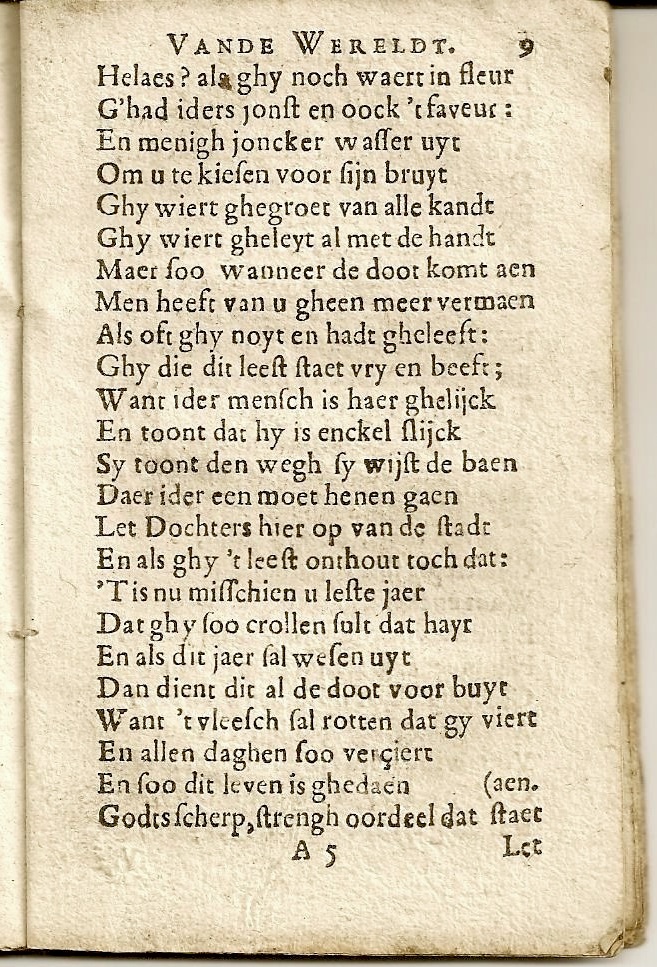 VANDE WERELDT. 9
Helaes? als ghy noch waert in fleur
G'had iders jonſt en oock 't faveur:
En menigh joncker waſſer uyt
Om u te kieſen voor ſijn bruyt
Ghy wiert ghegroet van alle kandt
Ghy wiert gheleyt al met de handt
Maer ſoo wanneer de doot komt aen
Men heeft van u gheen meer vermaen
Als oft ghy noyt en hadt gheleeft:
Ghy die dit leeſt ſtaet vry en beeft;
Want ider menſch is haer ghelijck
En toont dat hy is enckel ſlijck
Sy toont den wegh ſy wijſt de baen
Daer ider een moet henen gaen
Let Dochters hier op van de ſtadt
En als ghy 't leeſt onthout toch dat:
'T is nu miſſchien u leſte jaer
Dat ghy ſoo crollen ſult dat hayr
En als dit jaer ſal weſen uyt
Dan dient dit al de doot voor buyt
Want 't vleeſch ſal rotten dat gy viert
En allen daghen ſoo verçiert
En ſoo dit leven is ghedaen (aen.
Godts ſcherp, ſtrengh oordeel dat ſtaet
A 5 Let